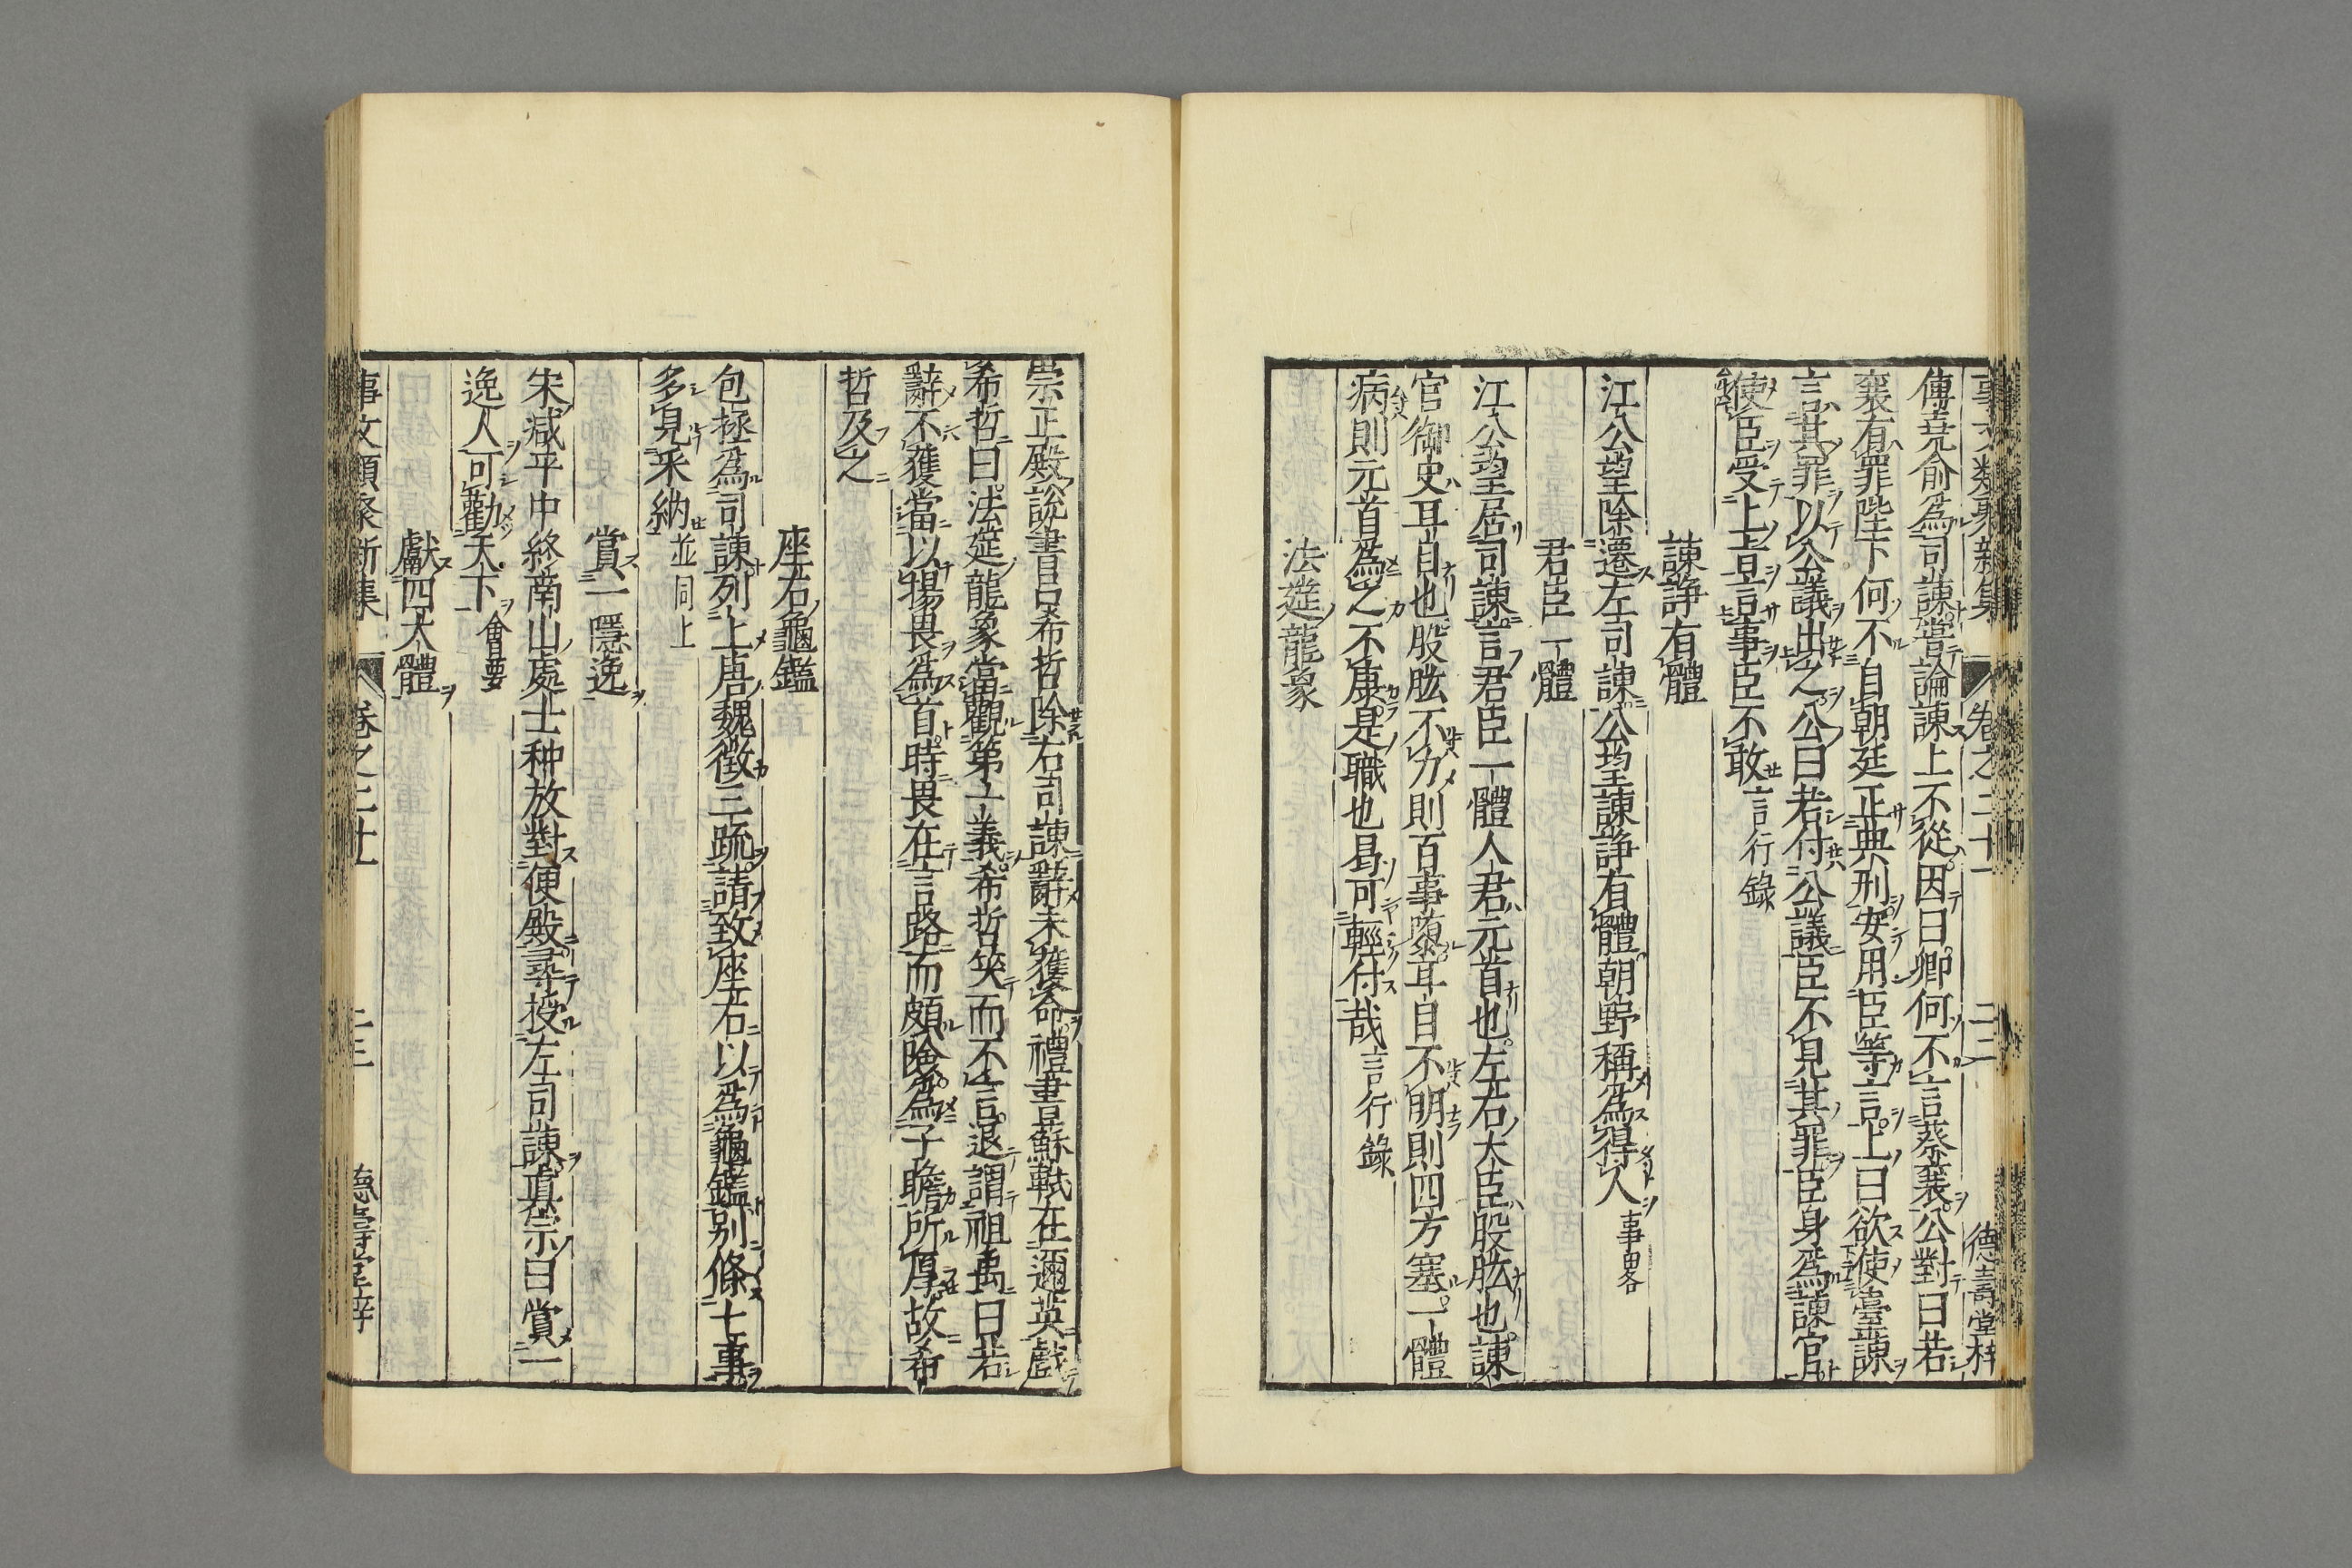 事文類聚新集 卷之二十一 二二 德壽堂梓
傳堯俞爲司諫嘗論諫上不從因曰卿何不言蔡襄公對曰若
襄有罪陛下何不自朝廷正典刑安用臣等言上曰欲使臺諫
言其罪以公議出之公曰若付公議臣不見其罪臣身爲諫官
使臣受上旨言事臣不敢言行錄
諫諍有體
江公望除遷左司諫公望諫諍有體朝野稱爲得人事畧
君臣一體
江公望居司諫言君臣一體人君元首也左右大臣股肱也諫
官御史耳目也股肱不力則百事墮耳目不明則四方塞一體
病則元首爲之不康是職也曷可輕付哉言行錄
法筵龍象
崇正殿說書呂希哲除右司諫辭未獲命禮書蘇軾在邇英戲
希哲曰法筵龍象當觀第一義希哲笑而不言退謂祖禹曰若
辭不獲當以楊畏爲首時畏在言路而頗險爲子瞻所厚故希
哲及之
座右龜鑑
包拯爲司諫列上唐魏徵三疏請致座右以爲龜鑑別條七事
多見采納並同上
賞一隱逸
宋咸平中終南山處士种放對便殿尋授左司諫眞宗曰賞一
逸人可勸天下會要
獻四大體
事文類聚新集 卷之二十一 二三 德壽堂梓